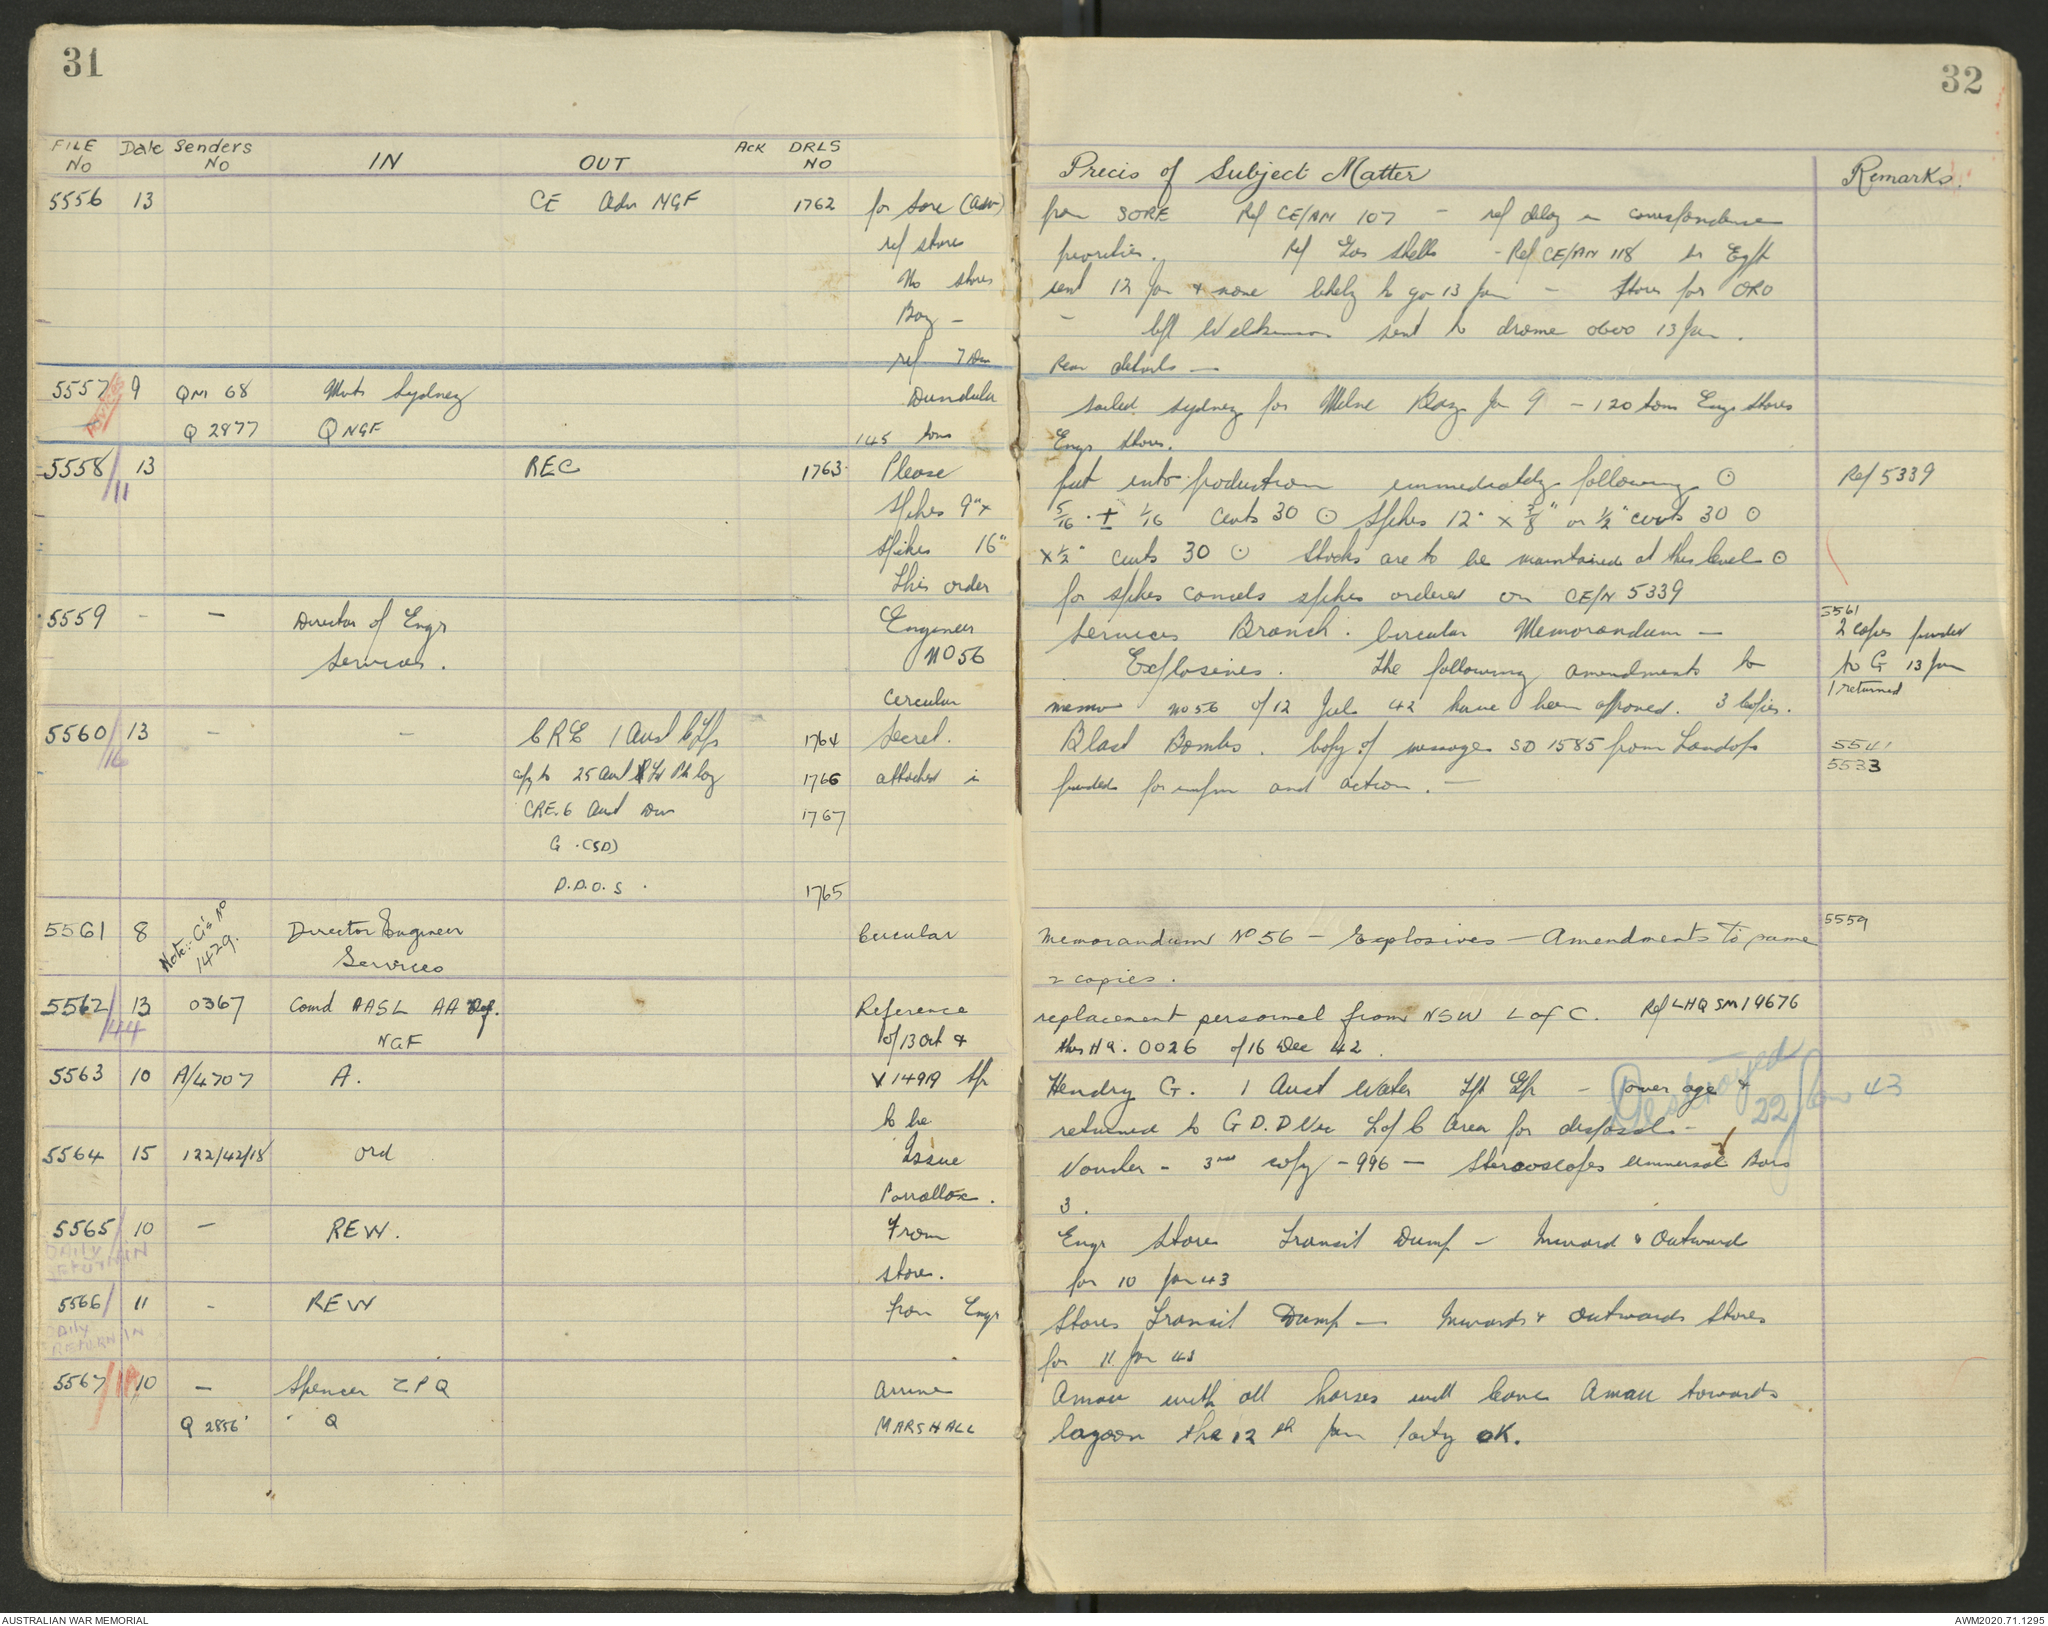 31
32
FILE No Date Senders No IN OUT Ack DRLS NO Precis of Subject Matter Remarks.
5556 13 CE Adv NGF 1762 for Sore (Adv) from SORE Ref CE/AN 107 - ref delay in correspondence
ref stores priorities. Ref Gas Shells - Ref CE/AN 118
No stores sent 12 Jan & none likely to go 13 Jan - Stores for ORO
Bay - - Lift Wilkinson sent to drome 0600 13 Jan.
ref 7 Div Rear details -
5557 9 QM 68 Mvts Sydney Dundula sailed Sydney for Milne Bay Jan 9 - 120 tons Engr Stores
Q 2877 Q NGF 145 tons Engr stores.
5558/11 13 REC 1763 Please put into production immediately following ⊙ Ref 5339
spikes 9" x 5/16 ± 1/16 cwts 30 ⊙ Spikes 12" x 3/8" or 1/2" cwts 30 ⊙
spikes 16" x 1/2" cwts 30 ⊙ Stocks are to be maintained at this level ⊙
This order for spikes cancels spikes ordered on CE/N 5339
5559 - - Director of Engr Engineer Services Branch. Circular Memorandum - 5561 2 copies
Services. No 56 Explosives. The following amendments to to G 13 Jan
Circular memo No 56 of 12 Jul 42 have been approved. 3 Copies. 1 returned
5560/16 13 - - CRE 1 Aust C Tps 1764 Secret. Blast Bombs. Copy of message SD 1585 from Landops 5541
copy to 25 Aust Fd Pk Coy 1766 attached is fwded for infm and action. - 5533
CRE. 6 Aust Div 1767
G. (SD)
D.D.O.S. 1765
5561 8 Note:- Cis No 1429. Director Engineer Circular Memorandum No 56 - Explosives - Amendments to same 5559
Services 2 copies.
5562/44 13 0367 Comd AASL AA Reg. Reference replacement personnel from NSW L of C. Ref LHQ SM19676
NGF of 13 Oct & this HQ. 0026 of 16 Dec 42.
5563 10 A/4707 A. V14919 Spr Hendry G. 1 Aust Water Tpt Gp - over age &
to be returned to G D.D Vic L of C Area for disposal -
Destroyed 22/Jan 43
5564 15 122/42/18 Ord Issue Voucher - 3rd copy - 996 - Stereoscopes Universal Bars
Parallax. 3.
5565/ 10 - REW. From Engr Stores Transit Dump - Inward & Outward
DAILY RETURN IN stores. for 10 Jan 43
5566/ 11 - REW from Engr Stores Transit Dump - Inwards & Outwards Stores
DAILY RETURN IN for 11 Jan 43
5567/ 10 - Spencer ZPQ Arrive Amau with all horses will leave Amau towards
Q 2856 Q MARSHALL lagoon the 12th Jan party OK.
AUSTRALIAN WAR MEMORIAL
AWM2020.71.1295